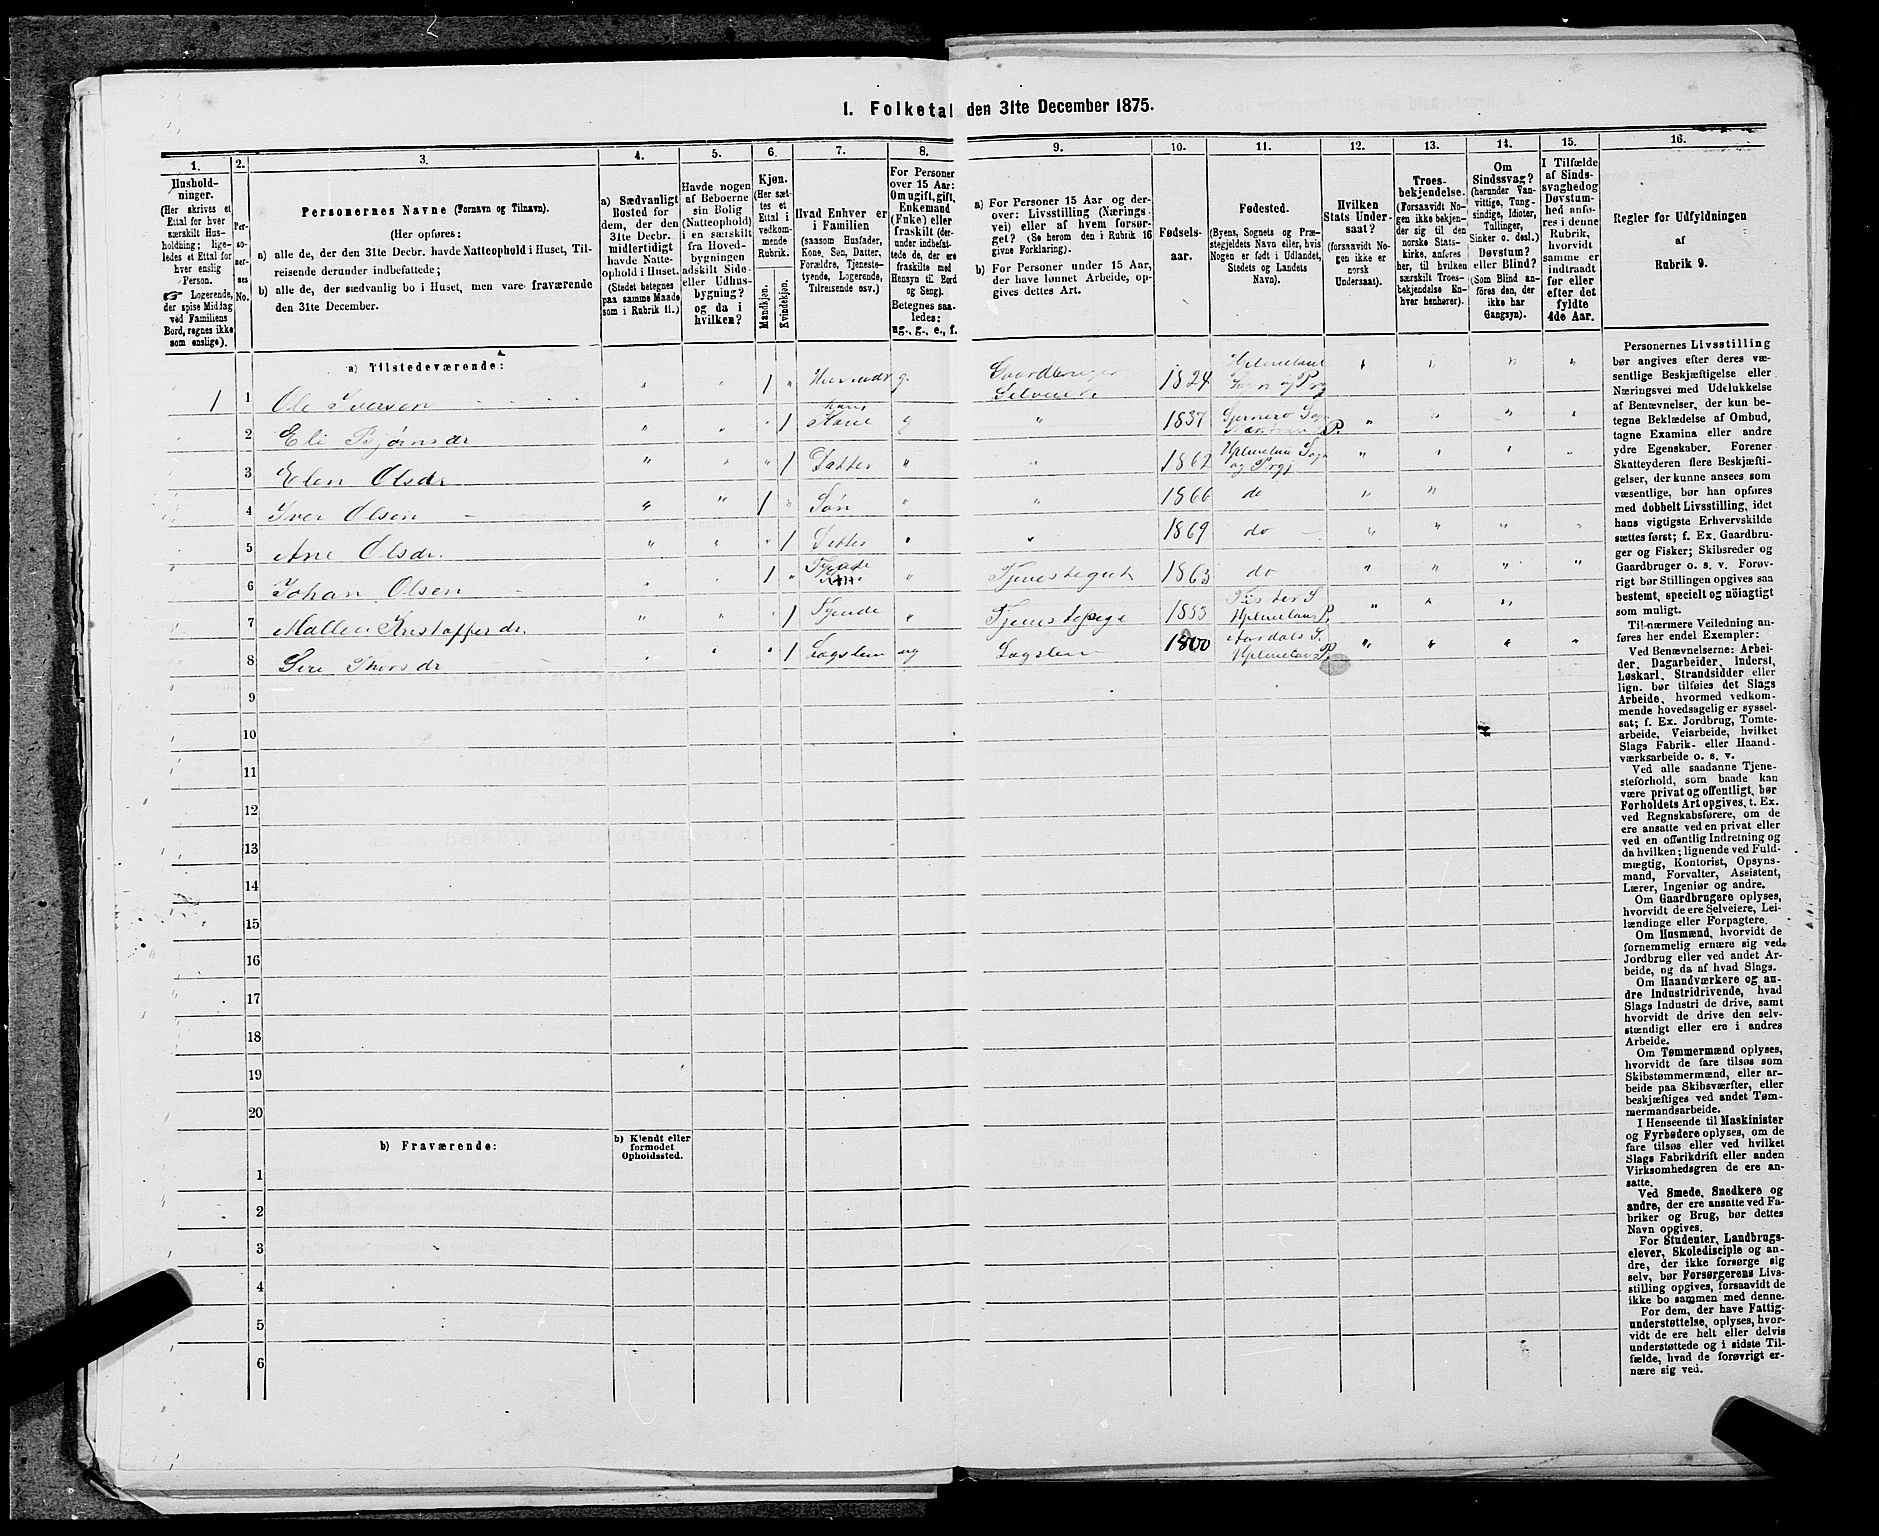 1. Folketal den 31te December 1875.
1.
Hushold-
ninger.
(Her skrives et
Ettal for hver
særskilt Hus-
holdning; lige-
ledes et Ettal for
hver enslig
Person.
☞ Logerende,
der spise Middag
ved Familiens
Bord, regnes ikke
som enslige).
2.
Per-
so-
ner-
nes
No.
3.
Personernes Navne (Fornavn og Tilnavn).
(Her opføres:
a) alle de, der den 31te Decbr. havde Natteophold i Huset, Til-
reisende derunder indbefattede;
b) alle de, der sædvanlig bo i Huset, men vare fraværende
den 31te December.
4.
a) Sædvanligt
Bosted for
dem, der den
31te Decbr.
midlertidigt
havde Natte-
ophold i Huset.
(Stedet betegnes
paa samme Maade
som i Rubrik 11.)
5.
Havde nogen
af Beboerne
sin Bolig
(Natteophold)
i en særskilt
fra Hoved-
bygningen
adskilt Side-
eller Udhus-
bygning?
og da i
hvilken?
6.
Kjøn.
(Her sæt-
tes et
Ettal i
vedkom-
mende
Rubrik.
Mandkjøn.
Kvindekjøn.
7.
Hvad Enhver er
i Familien
(saasom Husfader,
Kone, Søn, Datter,
Forældre, Tjeneste-
tyende, Logerende,
Tilreisende osv.)
8.
For Personer
over 15 Aar:
Om ugift, gift,
Enkemand
(Enke) eller
fraskilt (der-
under indbefat-
tede de, der ere
fraskilte med
Hensyn til Bord
og Seng).
Betegnes saa-
ledes:
ug., g., e., f.
9.
a) For Personer 15 Aar og der-
over: Livsstilling (Nærings-
vei) eller af hvem forsør-
get? (Se herom den i Rubrik 16
givne Forklaring).
b) For Personer under 15 Aar,
der have lønnet Arbeide, op-
gives dettes Art.
10.
Fødsels-
aar.
11.
Fødested.
(Byens, Sognets og Præ-
stegjeldets Navn eller, hvis
Nogen er født i Udlandet,
Stedets og Landets
Navn).
12.
Hvilken
Stats Under-
saat?
(forsaavidt No-
gen ikke er
norsk
Undersaat).
13.
Troes-
bekjendelse.
(Forsaavidt No-
gen ikke bekjen-
der sig til den
norske Stats-
kirke, anføres
her, til hvilken
særskilt Troes-
bekjendelse En-
hver henhører).
14.
Om
Sindssvag?
(herunder Van-
vittige, Tung-
sindige, Idioter,
Tullinger,
Sinker o. desl.)
Døvstum?
eller Blind?
(Som Blind an-
føres den, der
ikke har
Gangsyn).
15.
I Tilfælde
af Sinds-
svaghed og
Døvstum-
hed anfø-
res i denne
Rubrik,
hvorvidt
samme er
indtraadt
før eller
efter det
fyldte
4de Aar.
16.
Regler for Udfyldningen
af
Rubrik 9.
a) Tilstedeværende:
1 1 Ole Iversen 1 g. Gaardbruger Selveier 1824
2 Eli Bjørnsdr 1 hans Kone g 1837
3 Elen Olsdr 1 Datter 1862 Hjelmeland Sogn og Prgj
4 Iver Olsen 1 Søn 1866 do
5 Ane Olsdr. 1 Datter 1869 do
6 Johan Olsen 1 Tyende Tjenestegut 1863 do
7 Malleni Kristoffersdr. 1 Tyende Tjenestepige 1853 Fister S. Hjelmeland P.
8 Siri Thorsdr 1 Lægslem ug Lægslem 1800 Aardals S. Hjelmeland P.
9
10
11
12
13
14
15
16
17
18
19
20
b) Fraværende:
b) Kjendt eller
formodet
Opholdssted.
1
2
3
4
5
6
Personernes Livsstilling
bør angives efter deres væ-
sentlige Beskjæftigelse eller
Næringsvei med Udelukkelse
af Benævnelser, der kun be-
tegne Beklædelse af Ombud,
tagne Examina eller andre
ydre Egenskaber. Forener
Skatteyderen flere Beskjæfti-
gelser, der kunne ansees som
væsentlige, bør han opføres
med dobbelt Livsstilling, idet
hans vigtigste Erhvervskilde
sættes først; f. Ex. Gaardbru-
ger og Fisker; Skibsreder og
Gaardbruger o. s. v. Forøv-
rigt bør Stillingen opgives saa
bestemt, specielt og nøiagtigt
som muligt.
Til nærmere Veiledning an-
føres her endel Exempler:
Ved Benævnelserne: Arbei-
der, Dagarbeider, Inderst,
Løskarl, Strandsidder eller
lign. bør tilføies det Slags
Arbeide, hvormed vedkom-
mende hovedsagelig er syssel-
sat; f. Ex. Jordbrug, Tomte-
arbeide, Veiarbeide, hvilket
Slags Fabrik- eller Haand-
værksarbeide o. s. v.
Ved alle saadanne Tjene-
steforhold, som baade kan
være privat og offentligt, bør
Forholdets Art opgives, t. Ex.
ved Regnskabsførere, om de
ere ansatte ved en privat eller
ved en offentlig Indretning og
da hvilken; lignende ved Fuld-
mægtig, Kontorist, Opsyns-
mand, Forvalter, Assistent,
Lærer, Ingeniør og andre.
Om Gaardbrugere oplyses,
hvorvidt de ere Selveiere, Lei-
lændinge eller Forpagtere.
Om Husmænd, hvorvidt de
fornemmelig ernære sig ved
Jordbrug eller ved andet Ar-
beide, og da af hvad Slags.
Om Haandværkere og an-
dre Industridrivende, hvad
Slags Industri de drive, samt
hvorvidt de drive den selv-
stændigt eller ere i andres
Arbeide.
Om Tømmermænd oplyses,
hvorvidt de fare tilsøs som
Skibstømmermænd, eller ar-
beide paa Skibsværfter, eller
beskjæftiges ved andet Tøm-
mermandsarbeide.
I Henseende til Maskinister
og Fyrbødere oplyses, om de
fare tilsøs eller ved hvilket
Slags Fabrikdrift eller anden
Virksomhedsgren de ere an-
satte.
Ved Smede, Snedkere og
andre, der ere ansatte ved Fa-
briker og Brug, bør dettes
Navn opgives.
For Studenter, Landbrugs-
elever, Skoledisciple og an-
dre, der ikke forsørge sig
selv, bør Forsørgerens Livs-
stilling opgives, forsaavidt de
ikke bo sammen med denne.
For dem, der have Fattig-
understøttelse, oplyses, hvor-
vidt de ere helt eller delvis
understøttede og i sidste Til-
fælde, hvad de forøvrigt er-
nære sig ved.